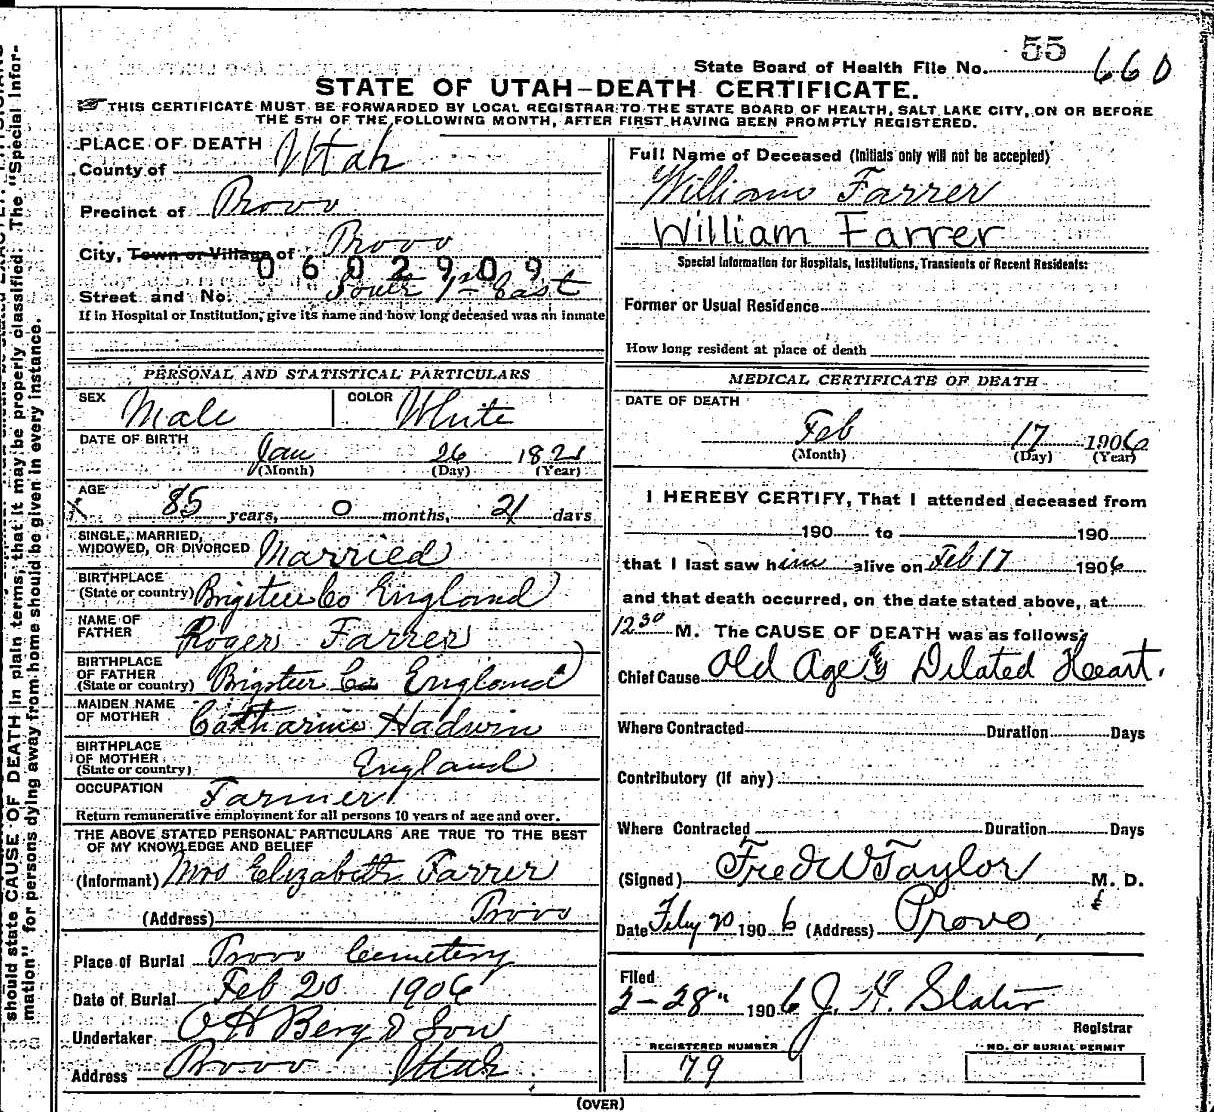 55
State Board of Health File No. 660
STATE OF UTAH—DEATH CERTIFICATE.
THIS CERTIFICATE MUST BE FORWARDED BY LOCAL REGISTRAR TO THE STATE BOARD OF HEALTH, SALT LAKE CITY, ON OR BEFORE
THE 5TH OF THE FOLLOWING MONTH, AFTER FIRST HAVING BEEN PROMPTLY REGISTERED.
PLACE OF DEATH
County of Utah
Precinct of Provo
City, Town or Village of Provo
0602909
Street and No. South 1st East
If in Hospital or Institution, give its name and how long deceased was an inmate
PERSONAL AND STATISTICAL PARTICULARS
SEX Male COLOR White
DATE OF BIRTH
Jan 26 1821
(Month) (Day) (Year)
AGE
85 years, 0 months, 21 days
SINGLE, MARRIED,
WIDOWED, OR DIVORCED Married
BIRTHPLACE
(State or country) Brigsteer Co England
NAME OF
FATHER Roger Farrer
BIRTHPLACE
OF FATHER
(State or country) Brigsteer Co England
MAIDEN NAME
OF MOTHER Catharine Hadwin
BIRTHPLACE
OF MOTHER
(State or country) England
OCCUPATION Farmer
Return remunerative employment for all persons 10 years of age and over.
THE ABOVE STATED PERSONAL PARTICULARS ARE TRUE TO THE BEST
OF MY KNOWLEDGE AND BELIEF
(Informant) Mrs Elizabeth Farrer
(Address) Provo
Place of Burial Provo Cemetery
Date of Burial Feb 20 1906
Undertaker O H Berg & Son
Address Provo Utah
Full Name of Deceased (Initials only will not be accepted)
William Farrer
William Farrer
Special Information for Hospitals, Institutions, Transients or Recent Residents:
Former or Usual Residence
How long resident at place of death
MEDICAL CERTIFICATE OF DEATH
DATE OF DEATH
Feb 17 1906
(Month) (Day) (Year)
I HEREBY CERTIFY, That I attended deceased from
190 to 190
that I last saw him alive on Feb 17 1906
and that death occurred, on the date stated above, at
12 30 M. The CAUSE OF DEATH was as follows:
Chief Cause Old Age & Dilated Heart.
Where Contracted Duration Days
Contributory (if any)
Where Contracted Duration Days
(Signed) Fred W Taylor M. D.
Date Feby 20 1906 (Address) Provo,
Filed
2-28" 1906 J. H. Slater
Registrar
REGISTERED NUMBER
79
NO. OF BURIAL PERMIT
(OVER)
should state CAUSE OF DEATH in plain terms, that it may be properly classified. The "Special Infor-
mation" for persons dying away from home should be given in every instance.